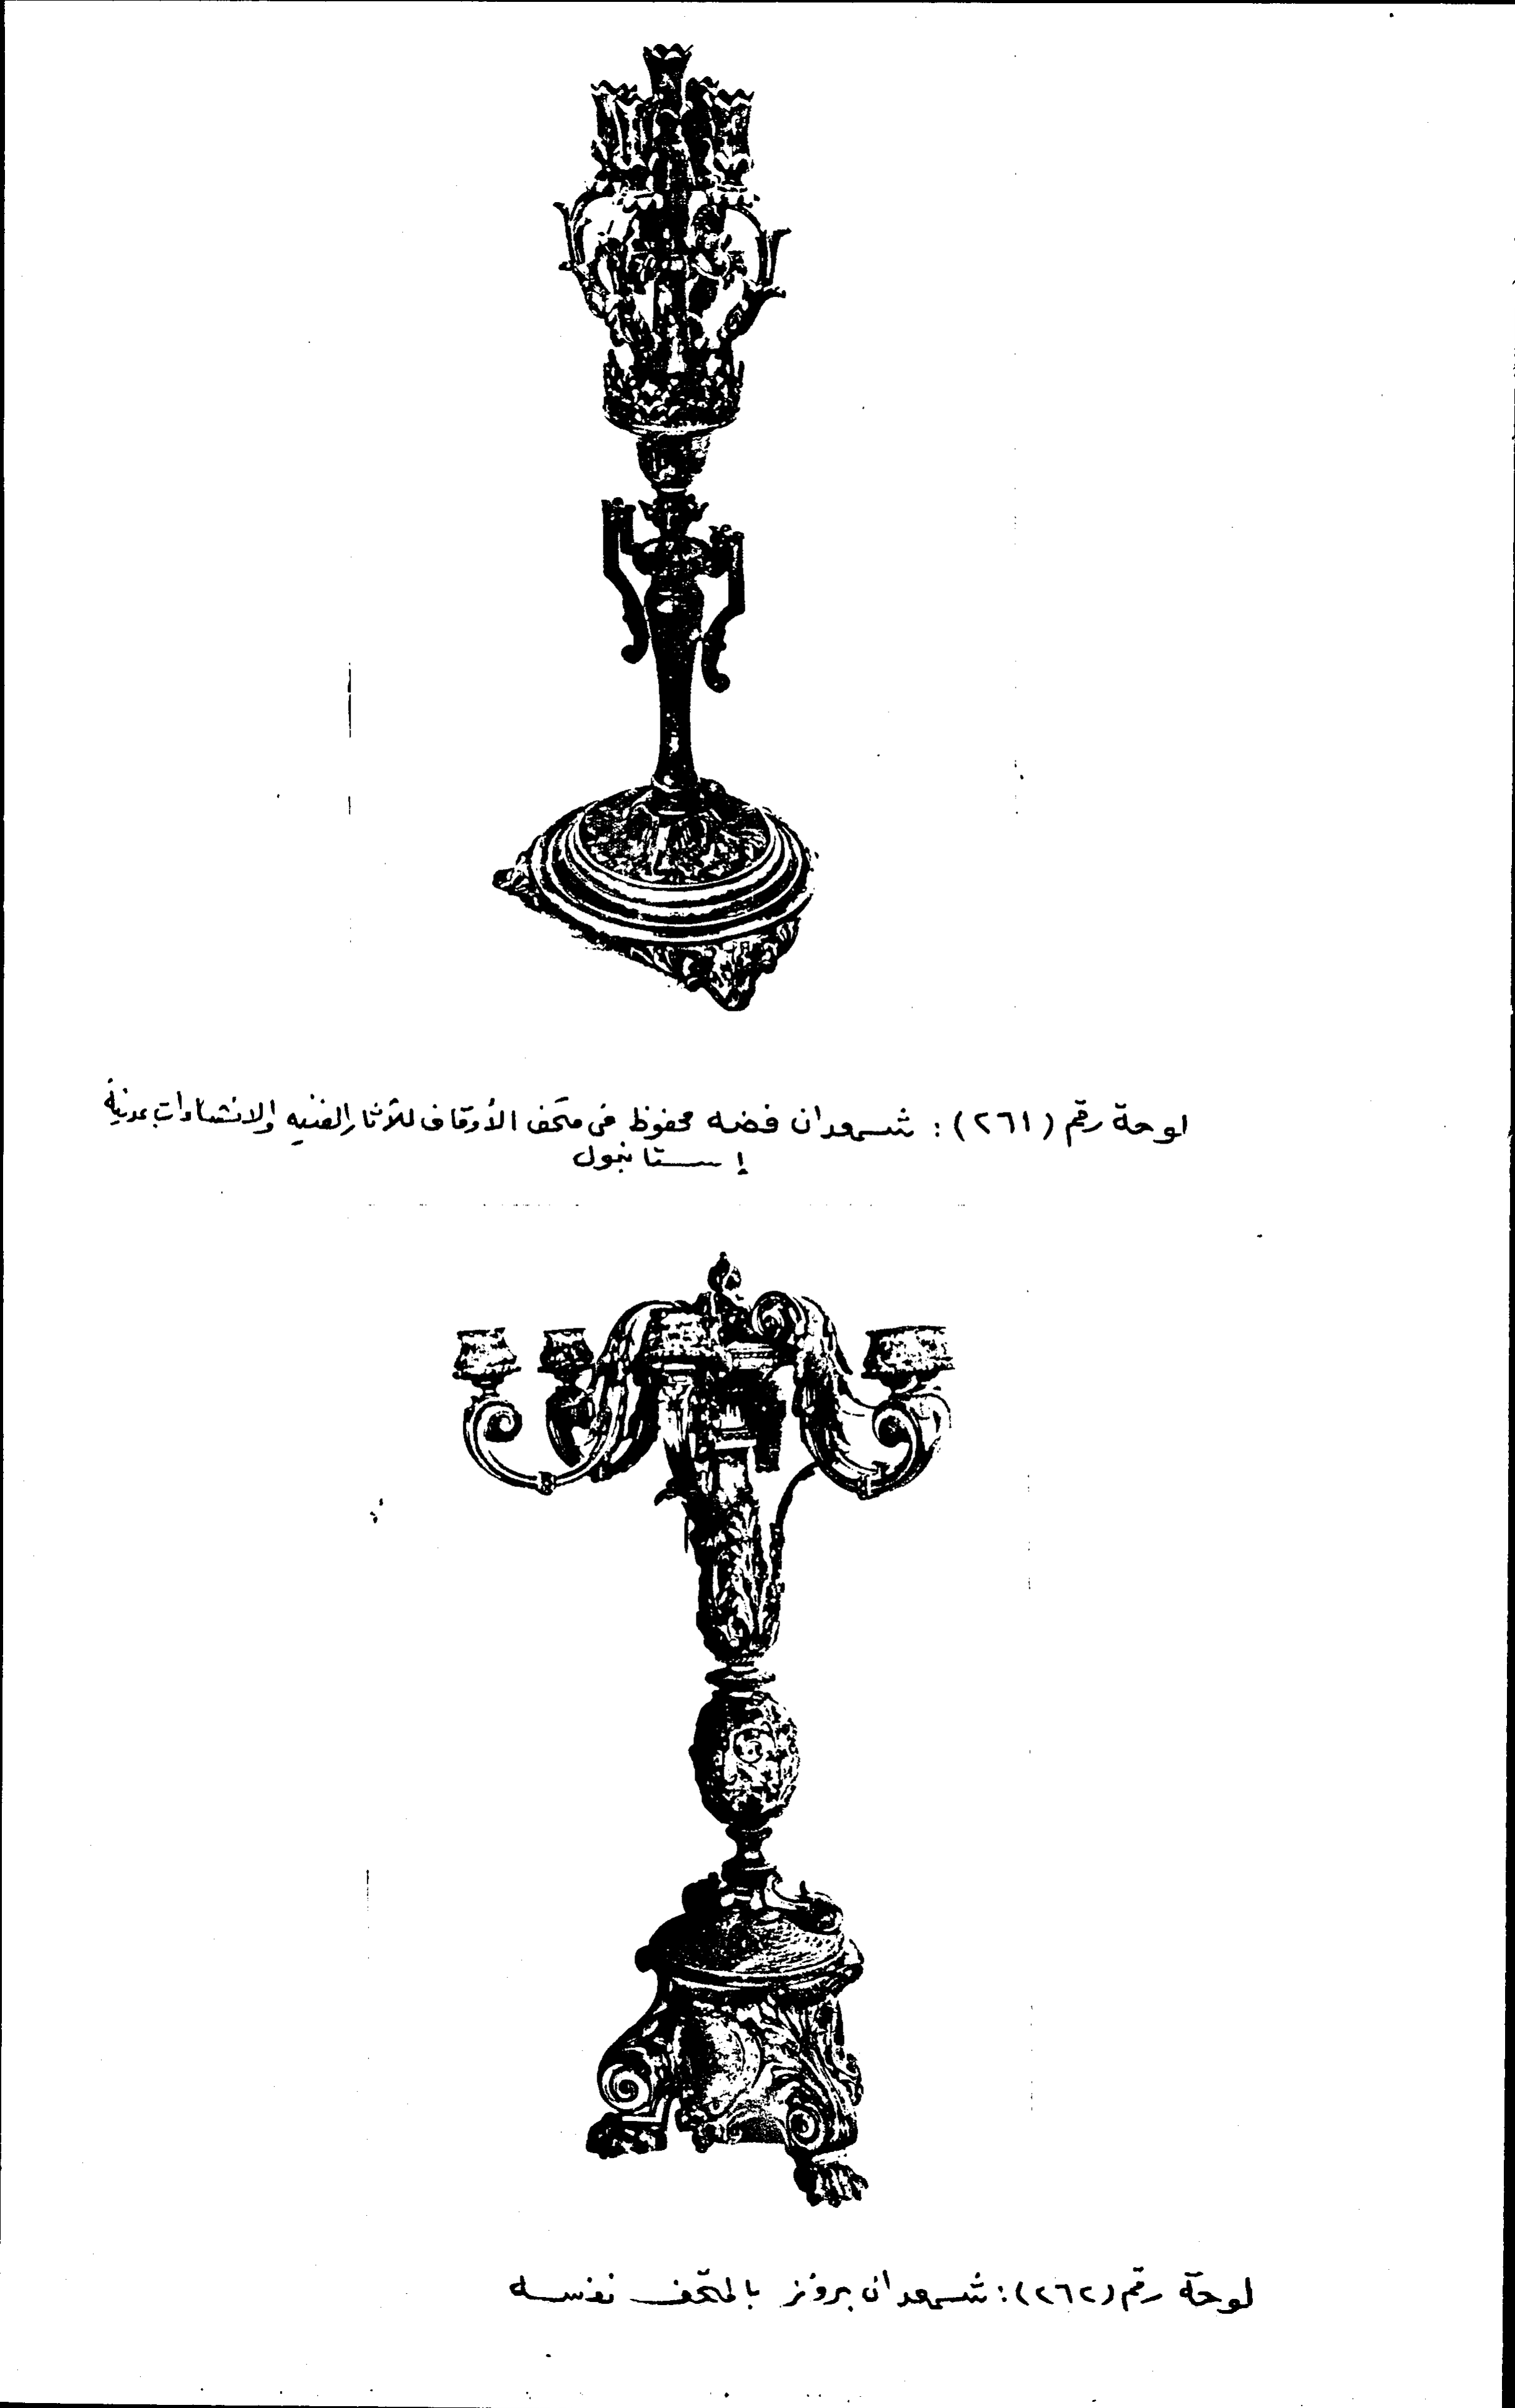 لوحة رقم (٢٦١) : شمعدان فضه محفوظ فى متحف الأوقاف للآثار الفنيه والانشاءات بمدينة
إستانبول
لوحة رقم (٢٦٢) : شمعدان برونز بالمتحف نفسه